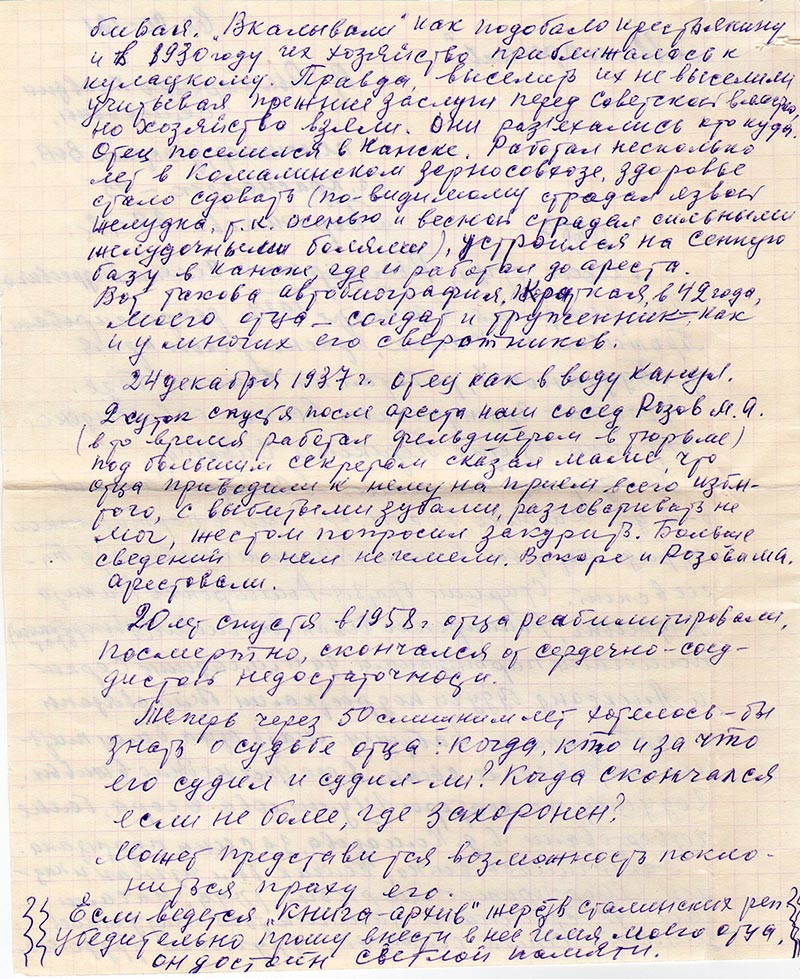 бивая. „Вкалывали" как подобало крестьянину
и в 1930 году их хозяйство приближалось к
кулацкому. Правда, выселить их не выселили
учитывая прежние заслуги перед Советской властью,
но хозяйство взяли. Они разъехались кто куда.
Отец поселился в Канске. Работал несколько
лет в Комалинском зерносовхозе, здоровье
стало сдовать (по-видимому страдал язвой
желудка, т.к. осенью и весной страдал сильными
желудочными болями), устроился на Сенную
базу в Канске, где и работал до ареста.
Вот такова автобиография, Краткая, в 42 года,
моего отца – солдат и труженник, как
и у многих его сверстников.
24 декабря 1937 г. отец как в воду канул.
2 суток спустя после ареста наш сосед Розов М.А.
(в то время работал фельдшером в тюрьме)
под большим секретом сказал маме, что
отца приводили к нему на прием всего изби-
того, с выбитыми зубами, разговаривать не
мог, жестом попросил закурить. Больше
сведений о нем не имели. Вскоре и Розова М.А.
арестовали.
20 лет спустя в 1958 г. отца реабилитировали,
посмертно, скончался от сердечно-сосу-
дистой недостаточности.
Теперь через 50 слишним лет хотелось-бы
знать о судьбе отца: Когда, кто и за что
его судил и судил-ли? Когда скончался
если не более, где захоронен?
Может представится возможность покло-
ниться праху его.
Если ведется „Книга-архив" жертв сталинских реп
убедительно прошу внести в нее имя моего отца,
он достоин светлой памяти.